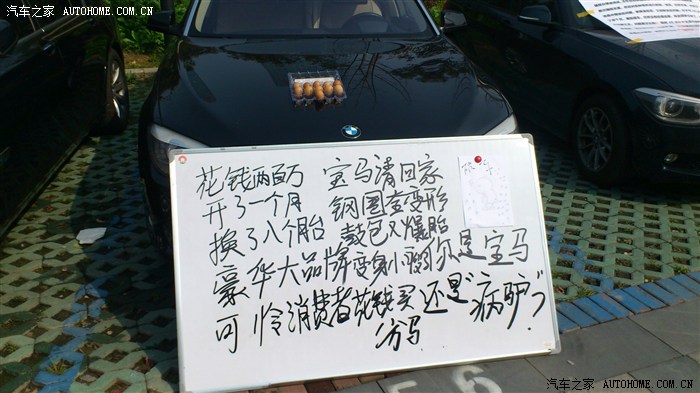 汽车之家 AUTOHOME.COM.CN
汽车之家 AUTOHOME.COM.CN
花钱两百万 宝马请回家
开了一个月 钢圈全变形
换了八个胎 鼓包又爆胎
豪华大品牌变身小 你是宝马
可怜消费者花钱买 还是"病驴"?
分马
56
汽车之家 AUTOHOME.COM.CN
汽车之家 AUTOHOME.COM.CN